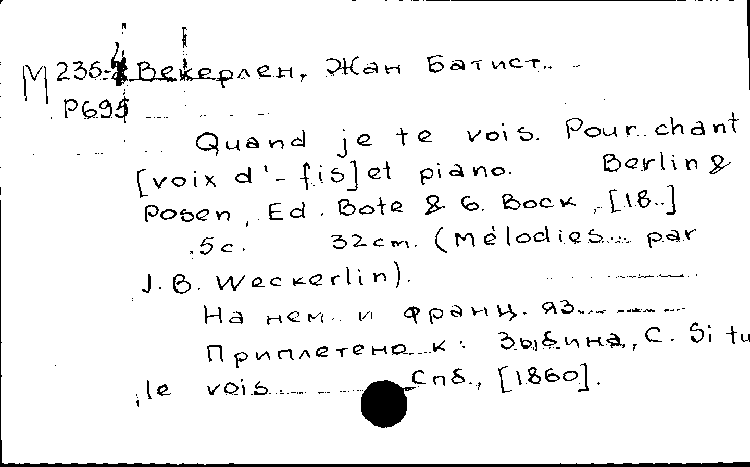 М 235-2 Векерлен, Жан Батист.
Р695
Quand je te vois. Pour chant
[voix d'-fis] et piano. Berlin &
Posen, Ed. Bote & G. Bock, [18..]
5 c. 32 cm. (Mélodies... par
J. B. Weckerlin).
На нем. и франц. яз.
Приплетено к: Зыбина, С. Si tu
le vois. Спб., [1860].